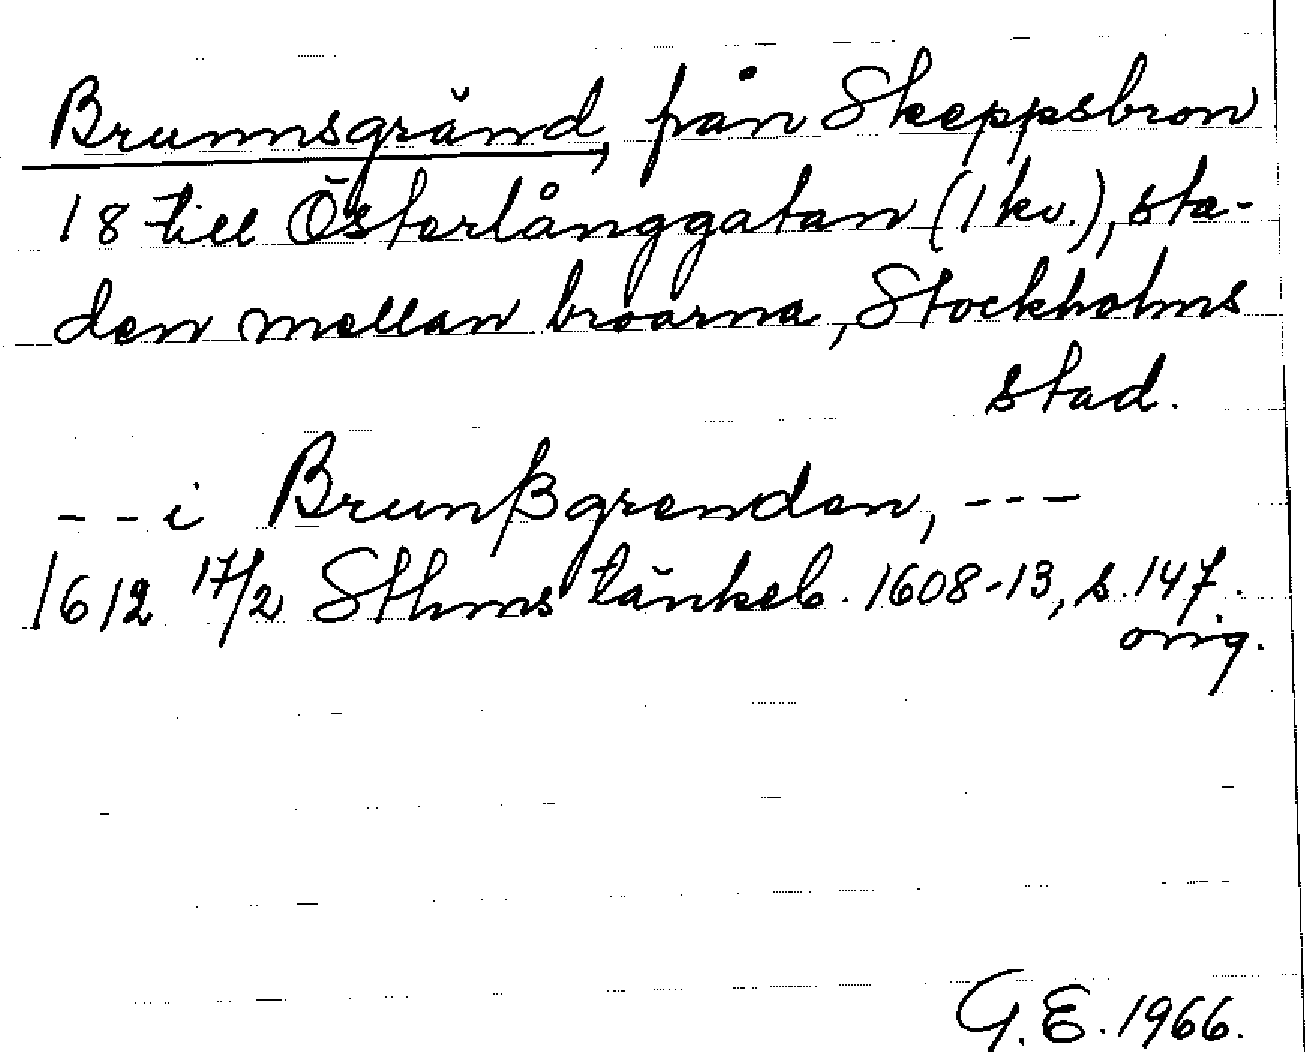 Brunnsgränd, från Skeppsbron
18 till Österlånggatan (1 kv.), sta-
den mellan broarna, Stockholms
stad.
- - i Brunßgrenden, - - -
1612 17/2 Sthms tänkeb. 1608-13, s. 147.
orig.
G. E. 1966.